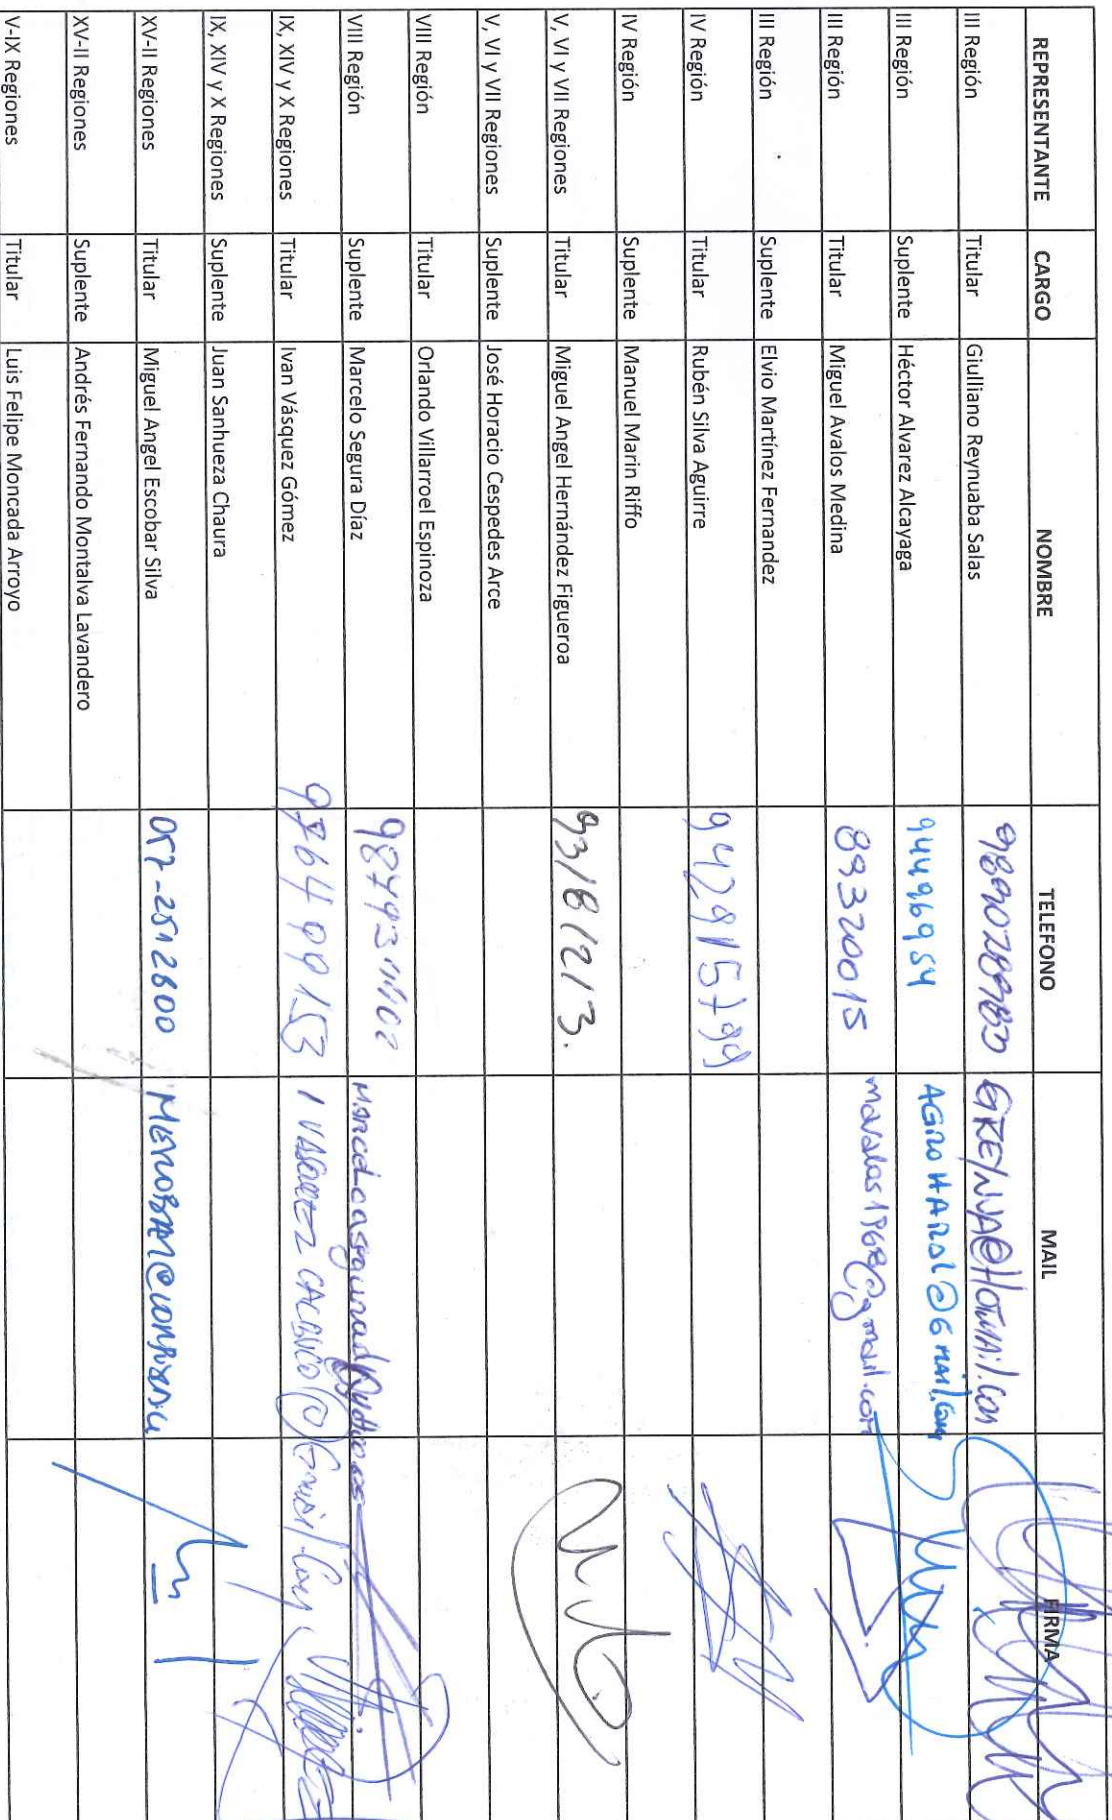 REPRESENTANTE CARGO NOMBRE TELEFONO MAIL FIRMA
III Región Titular Giulliano Reynuaba Salas
III Región Suplente Héctor Alvarez Alcayaga 944969954 AGROHARAL@GMAIL.COM
III Región Titular Miguel Avalos Medina 89320015 mavalos1968@gmail.com
III Región Suplente Elvio Martínez Fernandez
IV Región Titular Rubén Silva Aguirre
IV Región Suplente Manuel Marin Riffo
V, VI y VII Regiones Titular Miguel Angel Hernández Figueroa 931812113.
V, VI y VII Regiones Suplente José Horacio Cespedes Arce
VIII Región Titular Orlando Villarroel Espinoza
VIII Región Suplente Marcelo Segura Díaz
IX, XIV y X Regiones Titular Ivan Vásquez Gómez
IX, XIV y X Regiones Suplente Juan Sanhueza Chaura
XV-II Regiones Titular Miguel Angel Escobar Silva 057-2512600
XV-II Regiones Suplente Andrés Fernando Montalva Lavandero
V-IX Regiones Titular Luis Felipe Moncada Arroyo